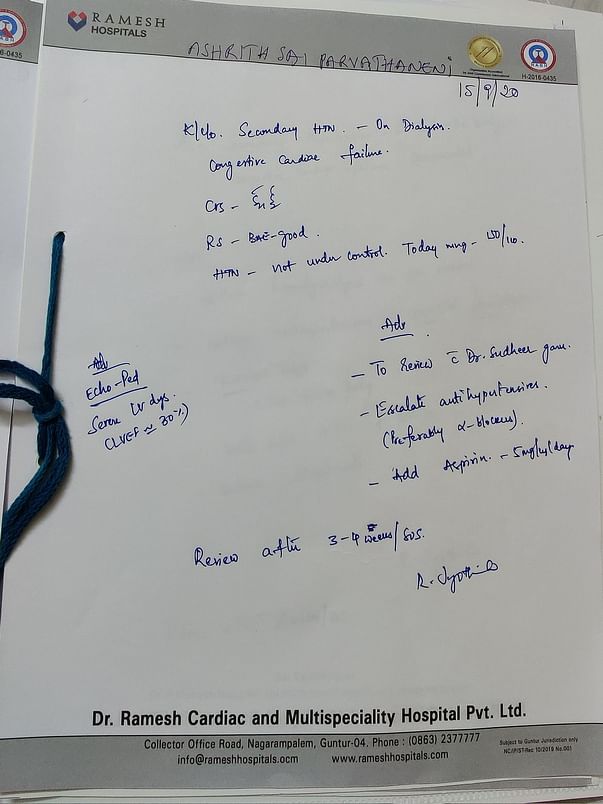 RAMESH
HOSPITALS
H-2016-0435
ASHRITH SAI PARVATHANENI
15/9/20
K/c/o. Secondary HTN. - On Dialysis.
Congestive Cardiac failure.
CVS - S1S2
RS - BAE-good.
HTN - not under control. Today mng - 150/110.
Adv
Echo-Ped
Severe LV dys.
(LVEF ~ 30%)
Adv
- To Review c̄ Dr. Sudheer garu.
- Escalate antihypertensives.
(Preferably α-blockers).
- Add Aspirin. - 5mg/kg/day
Review after 3-4 weeks/SOS.
Dr. Ramesh Cardiac and Multispeciality Hospital Pvt. Ltd.
Collector Office Road, Nagarampalem, Guntur-04, Phone : (0863) 2377777
info@rameshhospitals.ocm www.rameshhospitals.com
Subject to Guntur Jurisdiction only
NC/IP/ST-Rec 10/2019 No.001